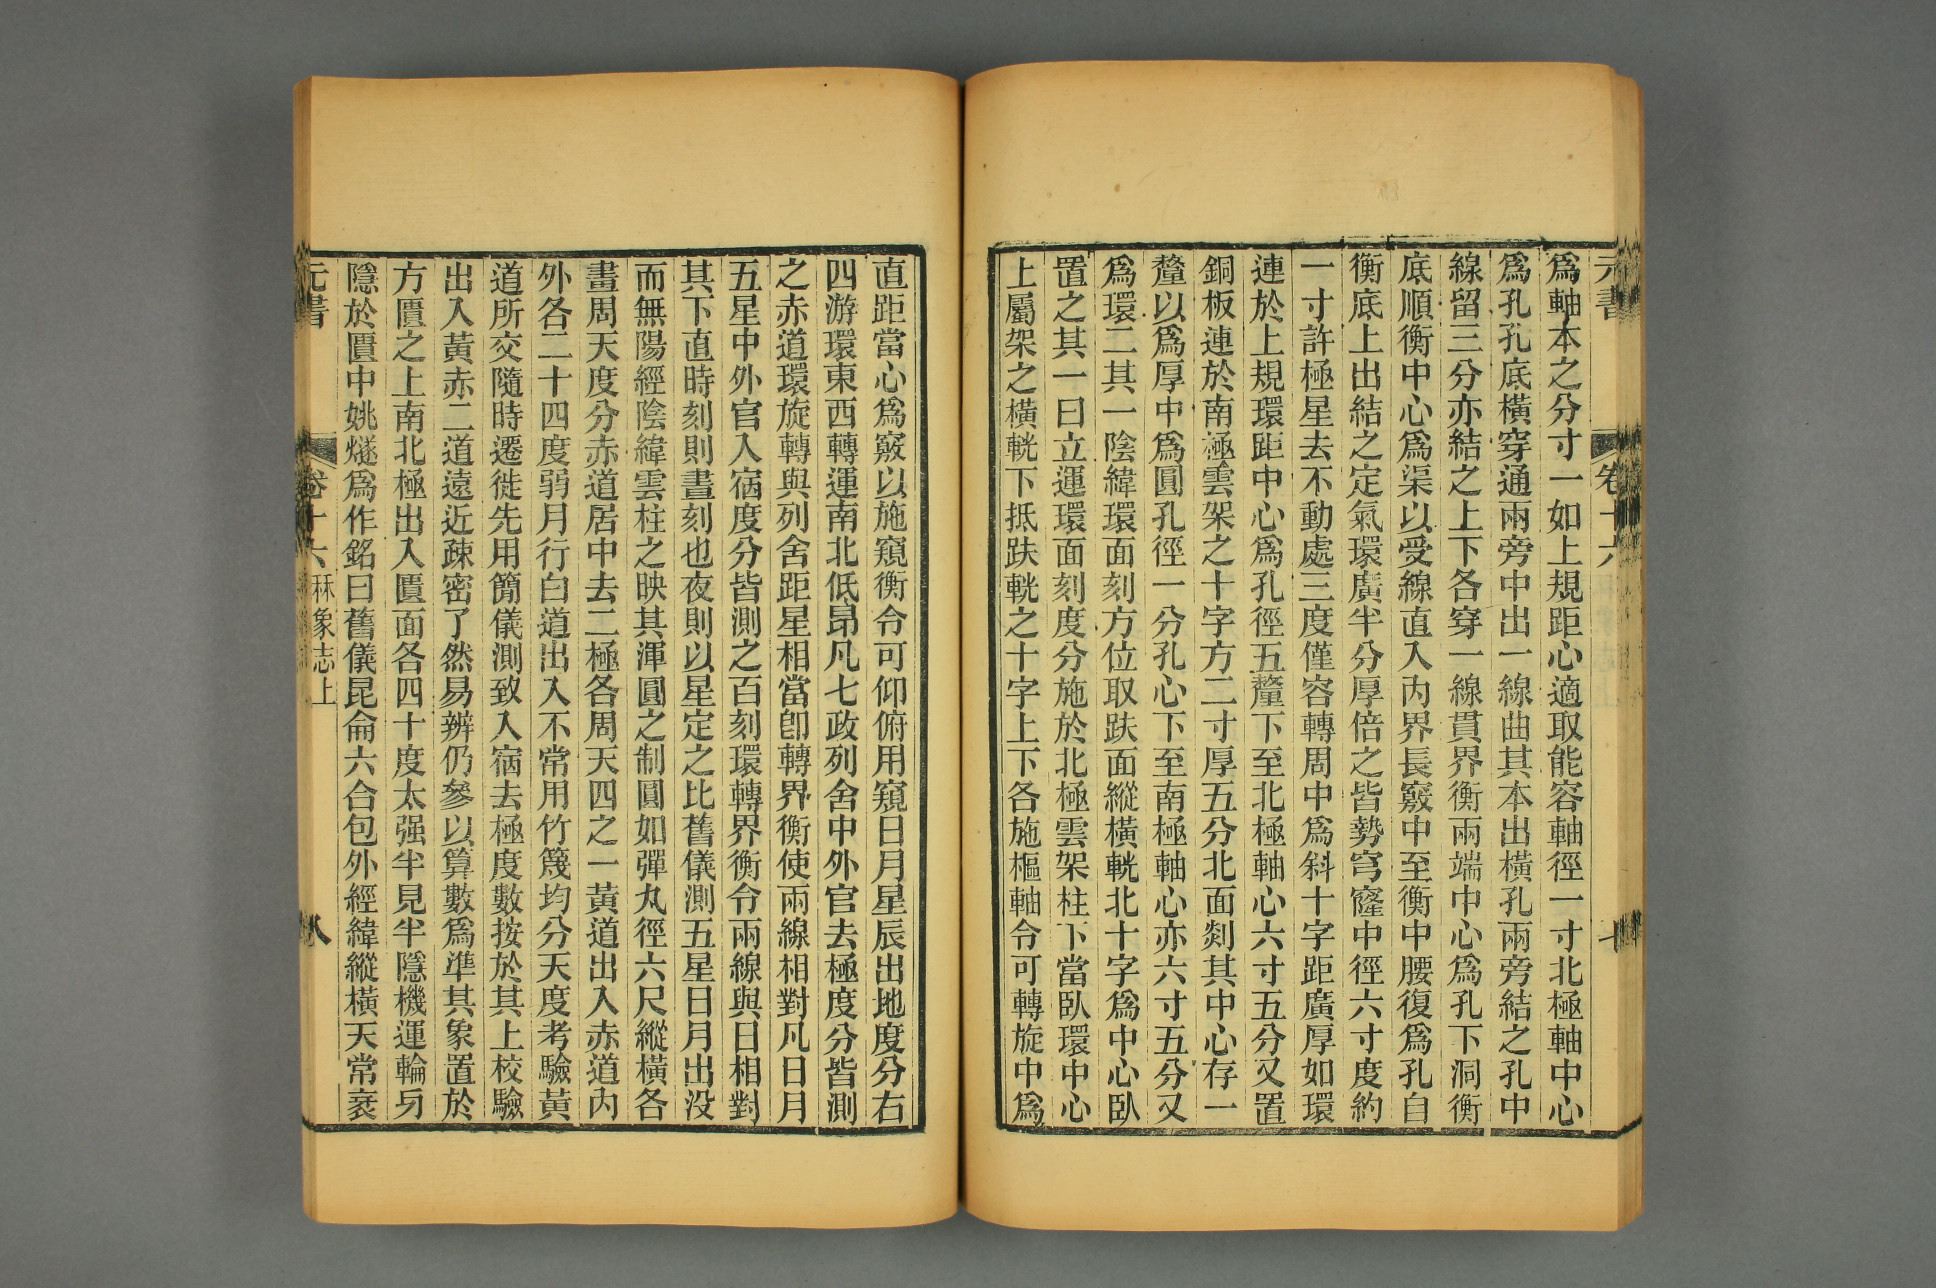 元書
卷十六
七
爲軸本之分寸一如上規距心適取能容軸徑一寸北極軸中心
爲孔孔底橫穿通兩旁中出一線曲其本出橫孔兩旁結之孔中
線留三分亦結之上下各穿一線貫界衡兩端中心爲孔下洞衡
底順衡中心爲渠以受線直入內界長竅中至衡中腰復爲孔自
衡底上出結之定氣環廣半分厚倍之皆勢穹窿中徑六寸度約
一寸許極星去不動處三度僅容轉周中爲斜十字距廣厚如環
連於上規環距中心爲孔徑五釐下至北極軸心六寸五分又置
銅板連於南極雲架之十字方二寸厚五分北面剡其中心存一
釐以爲厚中爲圓孔徑一分孔心下至南極軸心亦六寸五分又
爲環二其一陰緯環面刻方位取趺面縱橫輄北十字爲中心臥
置之其一曰立運環面刻度分施於北極雲架柱下當臥環中心
上屬架之橫輄下抵趺輄之十字上下各施樞軸令可轉旋中爲
直距當心爲竅以施窺衡令可仰俯用窺日月星辰出地度分右
四游環東西轉運南北低昂凡七政列舍中外官去極度分皆測
之赤道環旋轉與列舍距星相當卽轉界衡使兩線相對凡日月
五星中外官入宿度分皆測之百刻環轉界衡令兩線與日相對
其下直時刻則晝刻也夜則以星定之比舊儀測五星日月出沒
而無陽經陰緯雲柱之映其渾圓之制圓如彈丸徑六尺縱橫各
畫周天度分赤道居中去二極各周天四之一黃道出入赤道內
外各二十四度弱月行白道出入不常用竹篾均分天度考驗黃
道所交隨時遷徙先用簡儀測致入宿去極度數按於其上校驗
出入黃赤二道遠近疎密了然易辨仍參以算數爲準其象置於
方匱之上南北極出入匱面各四十度太强半見半隱機運輪与
隱於匱中姚燧爲作銘曰舊儀昆侖六合包外經緯縱橫天常衺
元書
卷十六
秝象志上
八